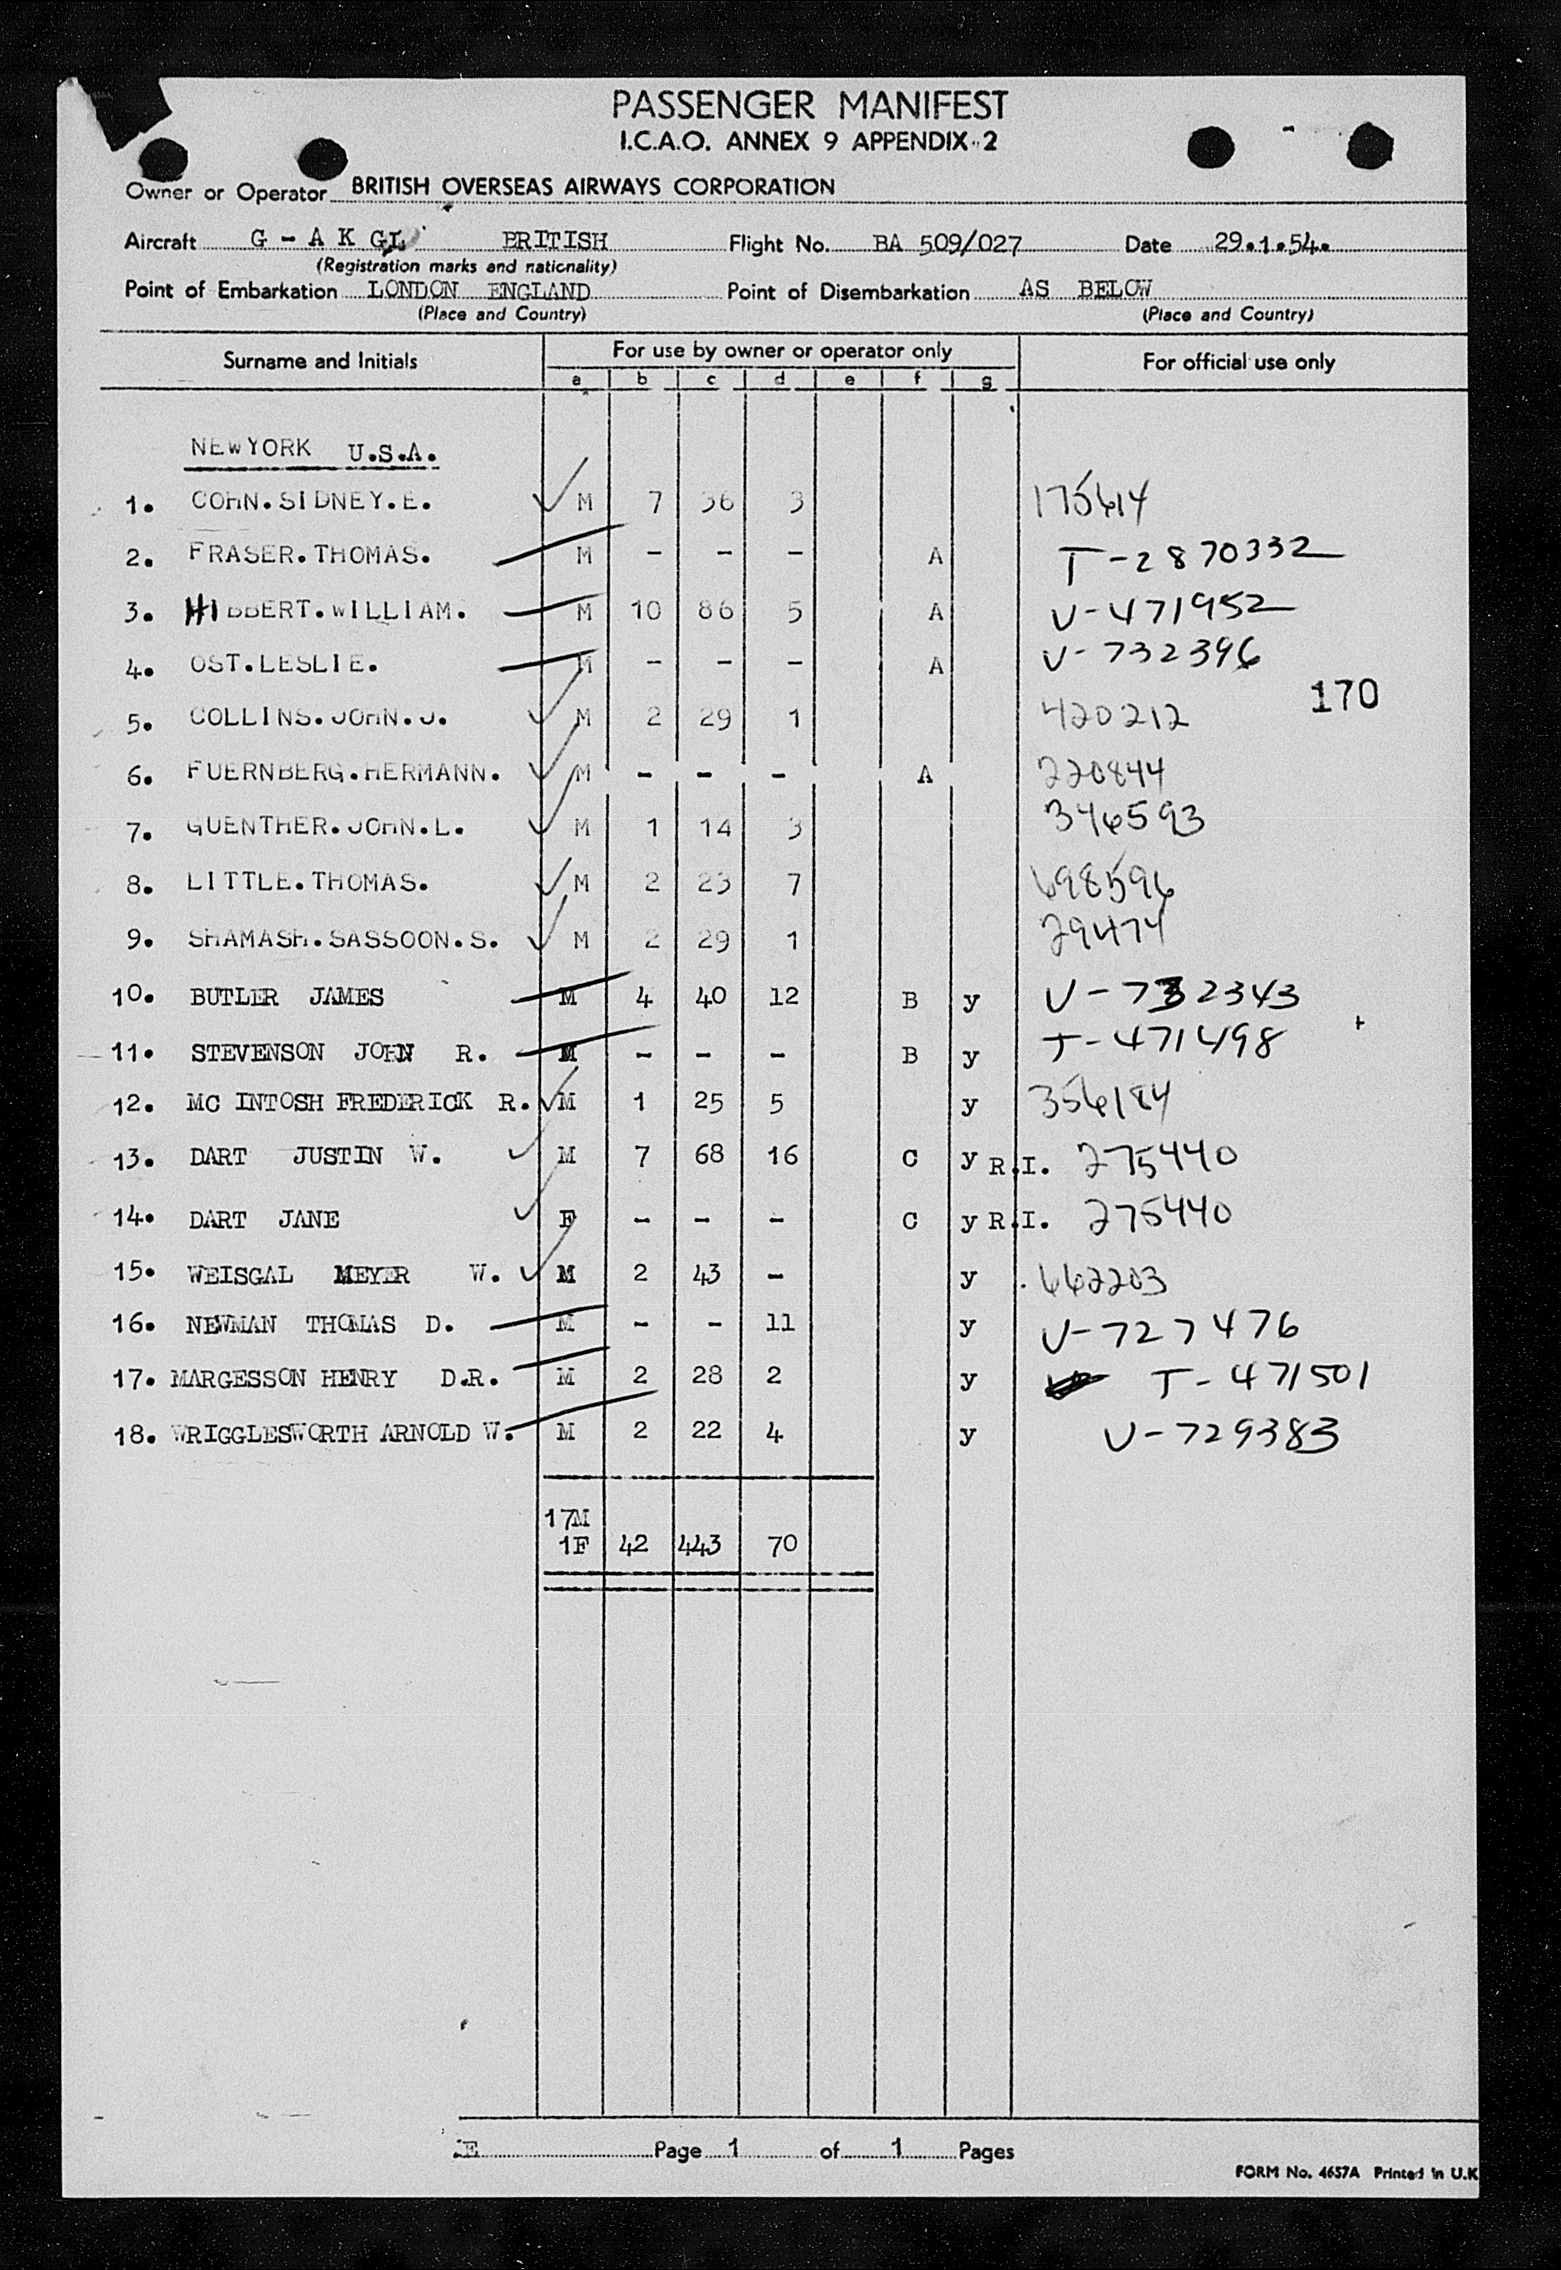 PASSENGER MANIFEST
I.C.A.O. ANNEX 9 APPENDIX 2
Owner or Operator BRITISH OVERSEAS AIRWAYS CORPORATION
Aircraft G - A K GL BRITISH Flight No. BA 509/027 Date 29.1.54.
(Registration marks and nationality)
Point of Embarkation LONDON ENGLAND Point of Disembarkation AS BELOW
(Place and Country) (Place and Country)
Surname and Initials For use by owner or operator only For official use only
a b c d e f g
NEWYORK U.S.A.
1. COHN.SIDNEY.E. M 7 36 3 175614
2. FRASER.THOMAS. M - - - A T-2870332
3. HIBBERT.WILLIAM. M 10 86 5 A V-471952
4. OST.LESLIE. M - - - A V-732396
170
5. COLLINS.JOHN.J. M 2 29 1 420212
6. FUERNBERG.HERMANN. M - - - A 220844
7. GUENTHER.JOHN.L. M 1 14 3 346593
8. LITTLE.THOMAS. M 2 23 7 698596
9. SHAMASH.SASSOON.S. M 2 29 1 29474
10. BUTLER JAMES M 4 40 12 B y V-732343
11. STEVENSON JOHN R. M - - - B y T-471498
12. MC INTOSH FREDERICK R. M 1 25 5 y 356184
13. DART JUSTIN W. M 7 68 16 C y R.I. 275440
14. DART JANE F - - - C y R.I. 275440
15. WEISGAL MEYER W. M 2 43 - y 662203
16. NEWMAN THOMAS D. M - - 11 y V-727476
17. MARGESSON HENRY D.R. M 2 28 2 y T-471501
18. WRIGGLESWORTH ARNOLD W. M 2 22 4 y V-729383
17M
1F 42 443 70
E Page 1 of 1 Pages
FORM No. 4657A Printed in U.K